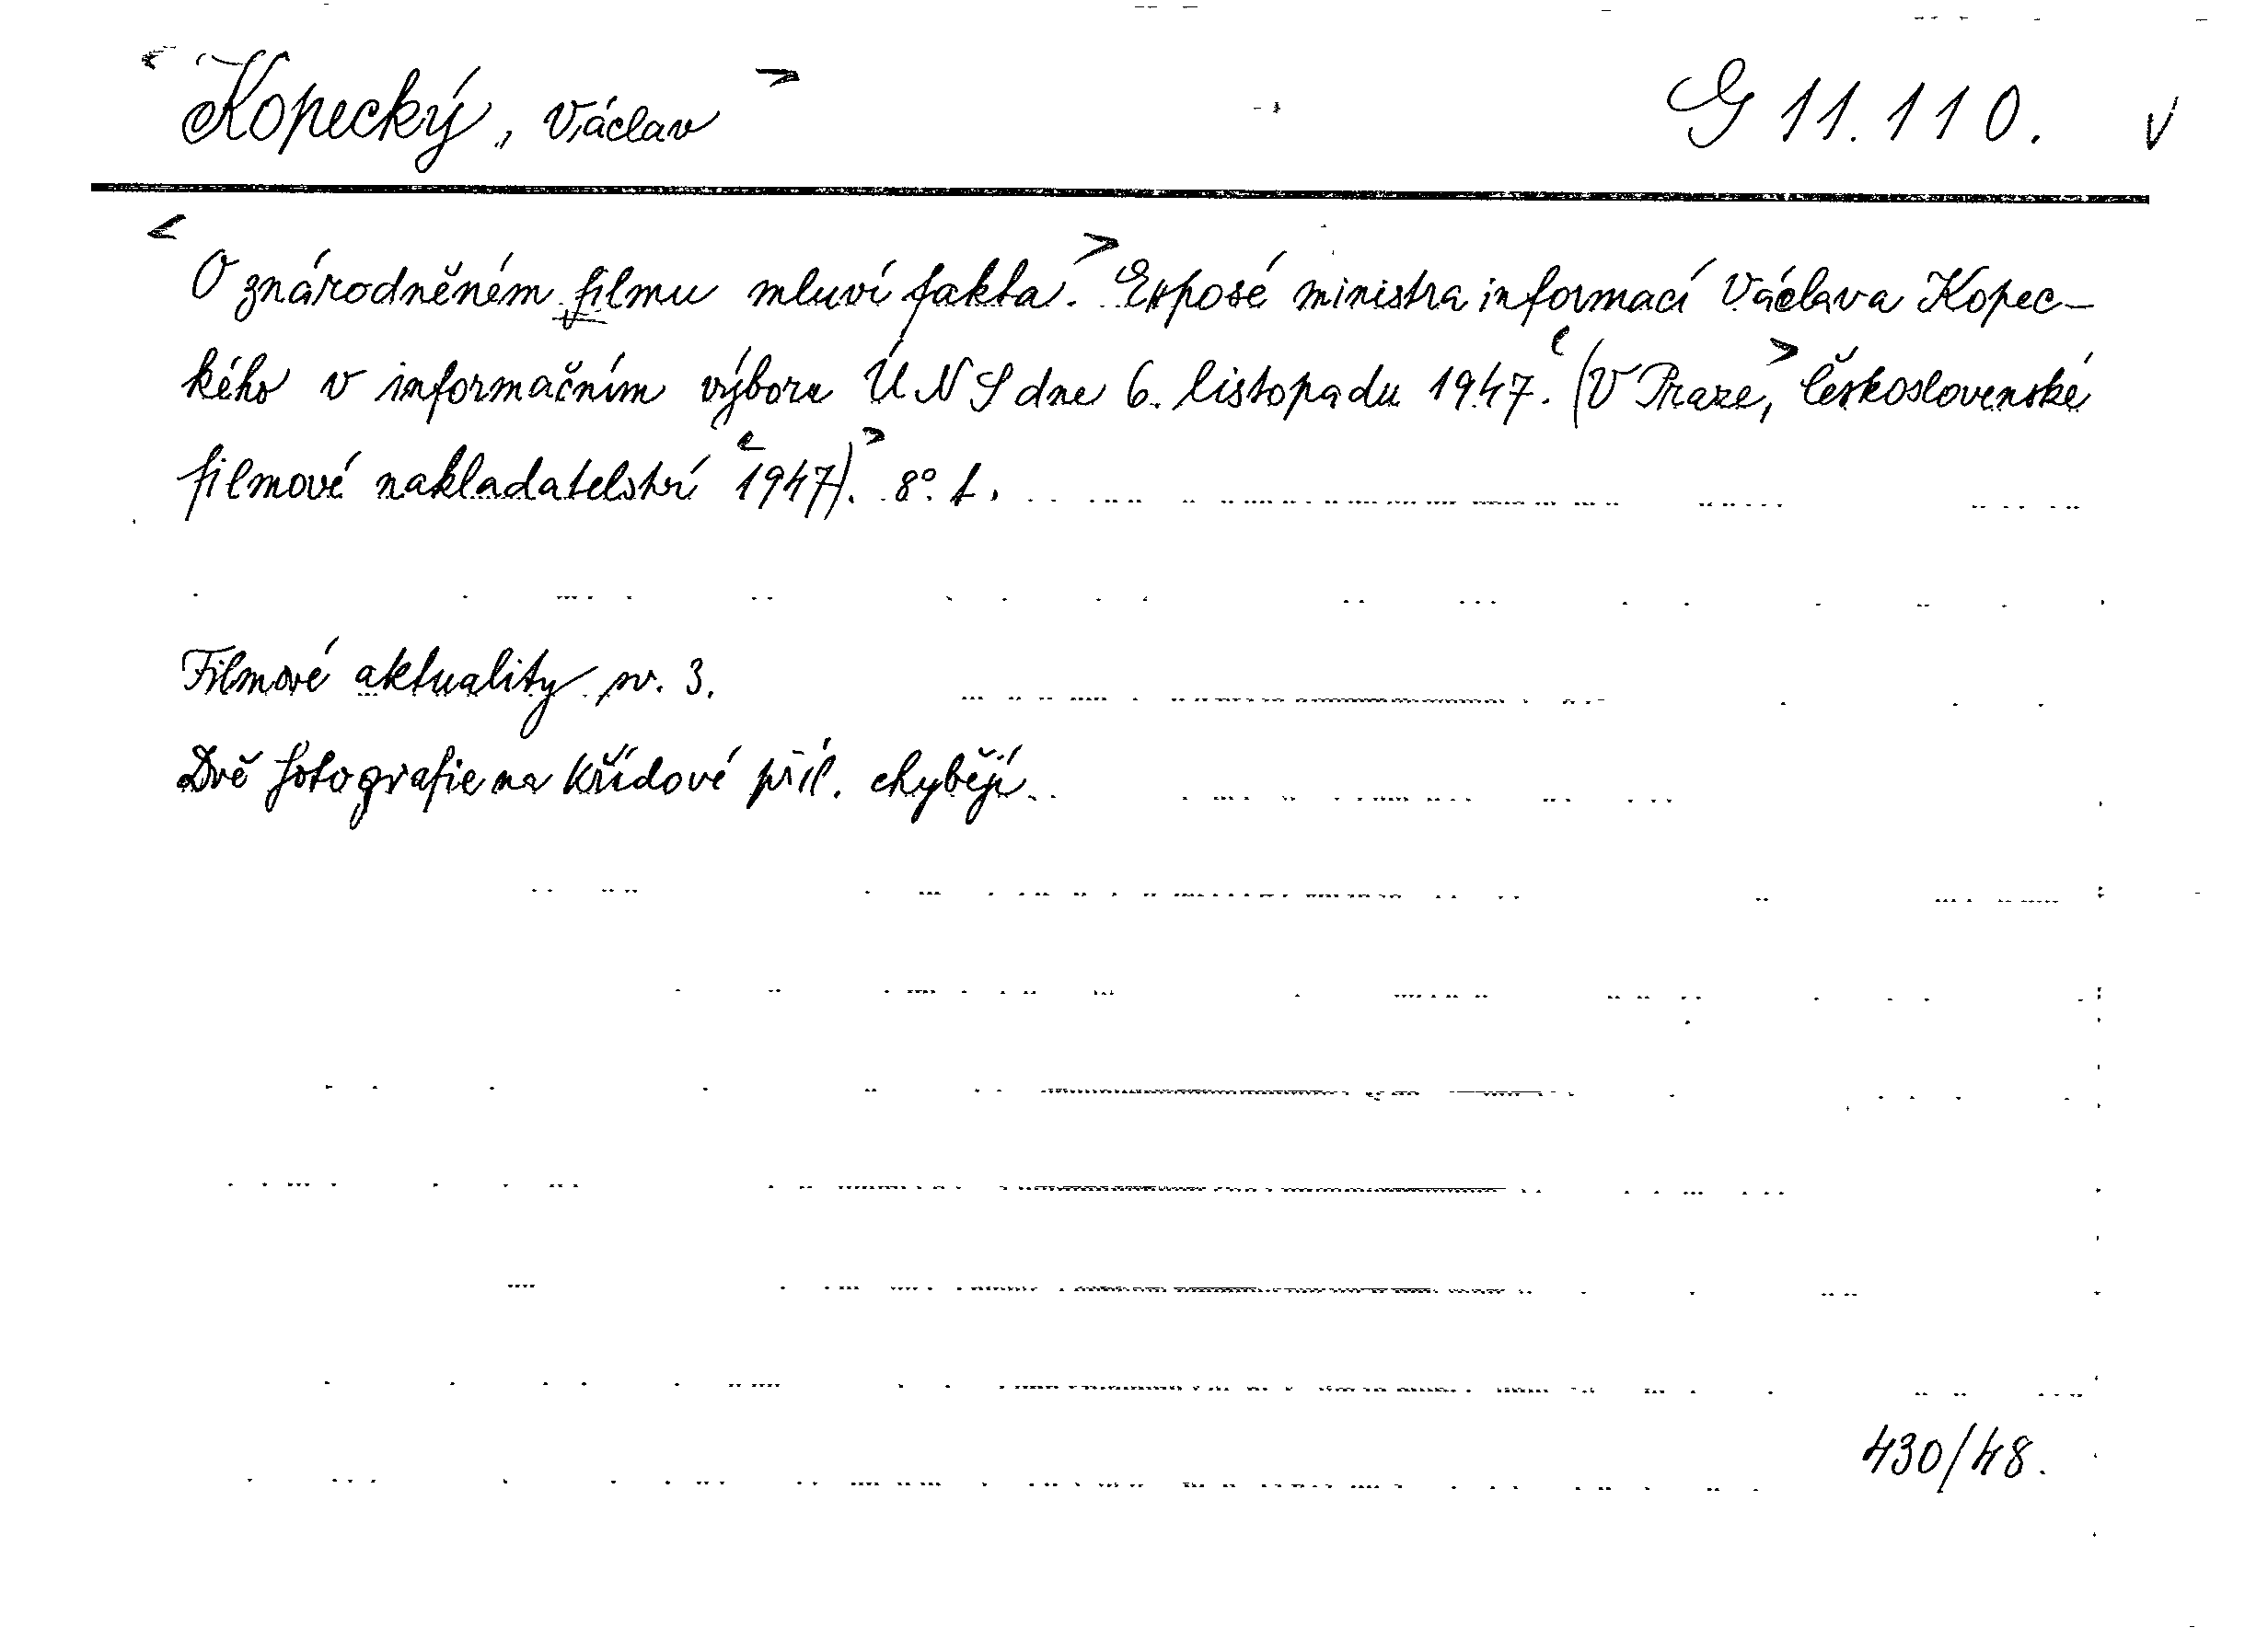 <Kopecký, Václav> G 11.110. v
<O znárodněném filmu mluví fakta.> Exposé ministra informací Václava Kopec-
kého v informačním výboru ÚNS dne 6. listopadu 1947. <(V Praze,> Československé
filmové nakladatelství <1947).> 8°.
Filmové aktuality sv. 3.
Dvě fotografie na křídové příl. chybějí.
430/48.